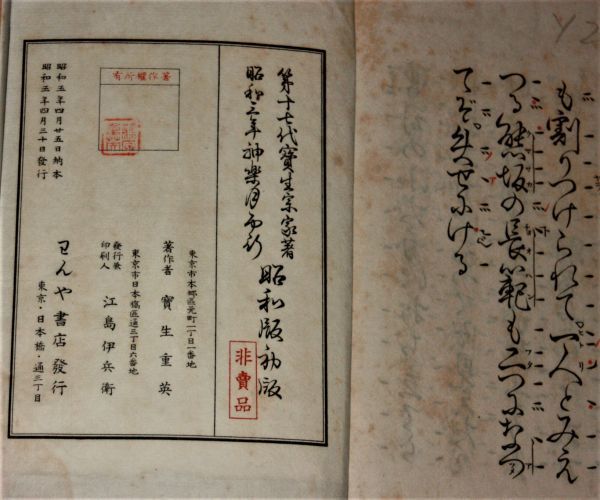 も割りつけられて。一人とみえ
つる熊坂の長範も二つになつ
てぞ。失せにける
第十七代寶生宗家著
昭和三年神樂月
昭和版初版
非賣品
東京市本郷區元町一丁目一番地
著作者 寶生重英
東京市日本橋區通三丁目六番地
發行兼
印刷人 江島伊兵衛
わんや書店發行
東京・日本橋・通三丁目
著作權所有
昭和五年四月廿五日納本
昭和五年四月三十日發行